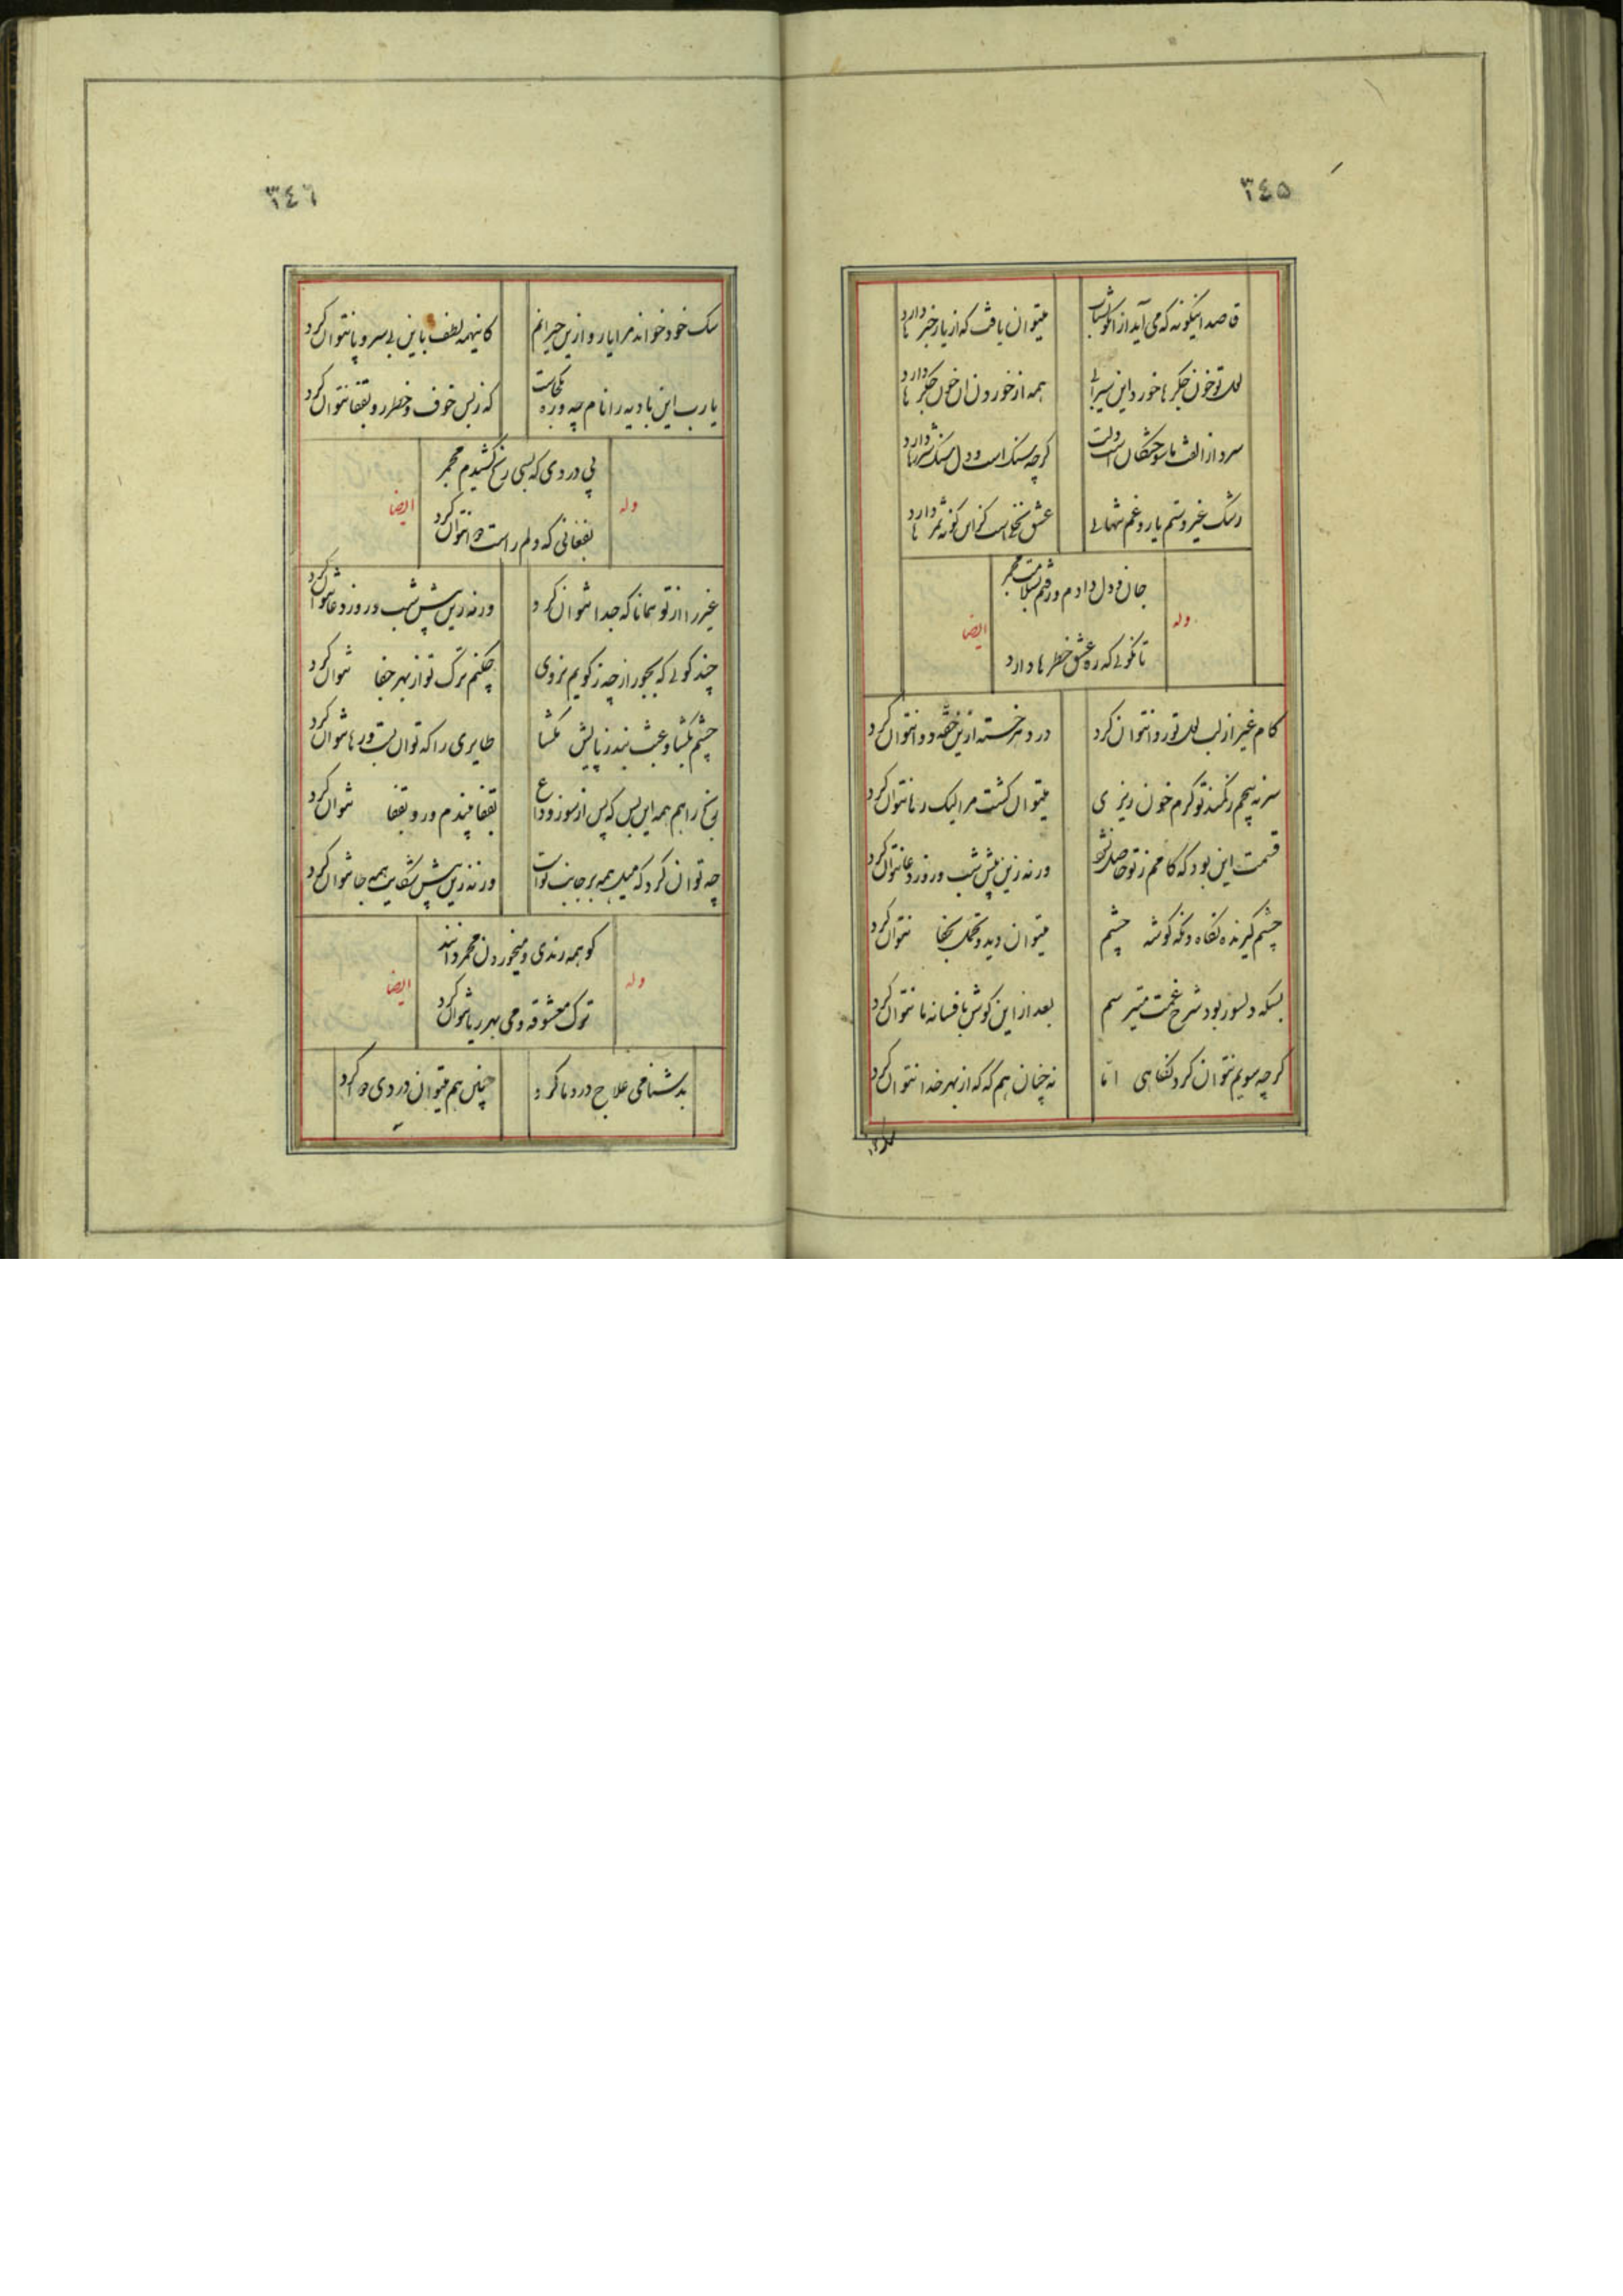 ٣٤٥
قاصد اینگونه که می آید از انکو بشتاب
میتوان یافت که از یار خبرها دارد
لعل تو خون جگرها خورد این سیرابی
همه از خوردن ان خون جگرها دارد
سرد از الفت ما سوختگان است دلت
کرچه سنک است و دل سنک شررها دارد
رشک غیر و ستم یار و غم تنهایی
عشق نخلی است کزاین کونه ثمرها دارد
جان و دل دادم و رفتم بسلامت مجمر
وله
ایضا
تا نکویی که ره عشق خطرها دارد
کام غیر از لب لعل تو روا نتوان کرد
درد هر خسته ازین حقه دوا نتوان کرد
سر نه پیچم ز کمند تو کرم خون ریزی
میتوان کشت مرا لیک رها نتوان کرد
قسمت این بود که کامم ز تو حاصل نشود
ورنه زین پیش شب و روز دعا نتوان کرد
چشم گیرنده نگاه ونکه کوشه چشم
میتوان دید و تحمل بخفا نتوان کرد
بسکه دلسوز بود شرح غمت میترسم
بعد از این کوش بافسانه ما نتوان کرد
کرچه سویم نتوان کرد نگاهی اما
نه چنان هم که که از بهر خدا نتوان کرد
٣٤٦
سک خود خواند مرا یار و ازین حیرانم
کاینهمه لطف باین بی سر و پا نتوان کرد
یارب این بادیه را نام چه و ره بکجاست
که زبس خوف و خطر رو بقفا نتوان کرد
پی دردی که بسی رنج کشیدم مجمر
وله
ایضا
بفغانی که دلم راست دوا نتوان کرد
غیر را از تو همانا که جدا نتوان کرد
ورنه زین پیش شب و روز دعا نتوان کرد
چند کویی که بجور از چه ز کویم نروی
چکنم ترک تو از بهر جفا نتوان کرد
چشم بکشا و عبث بند ز پایش مکشا
طایری را که توان بست و رها نتوان کرد
رنج راهم همه این بس که پس از سوز وداع
بقفا بیندم و رو بقفا نتوان کرد
چه توان کرد که میل همه بر جانب توست
ورنه زین پیش شکایت همه جا نتوان کرد
کو همه رندی و میخوردن مجمر دانند
وله
ایضا
ترک معشوقه و می بهر ریا نتوان کرد
بدشنامی علاج درد ما کرد
چنین هم میتوان دردی دوا کرد